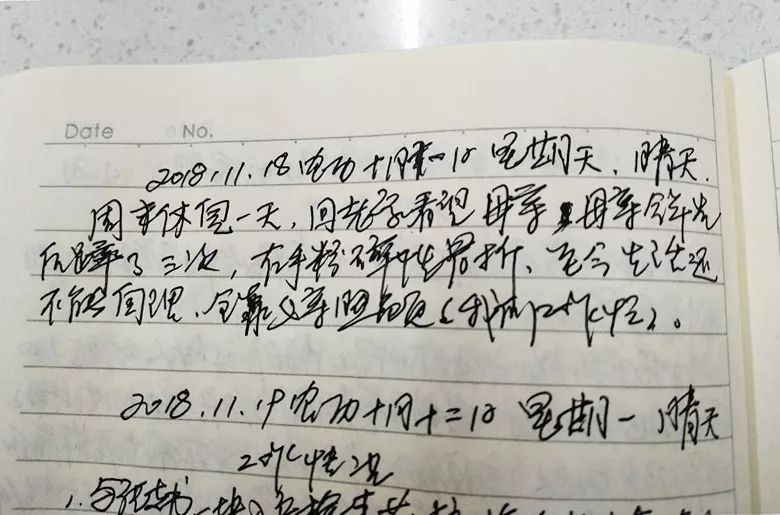 Date No.
2018.11.18 农历十月十一日 星期天, 晴天.
周末休息一天, 回老家看望母亲, 母亲今年先
后摔了三次, 右手粉碎性骨折、至今生活还
不能自理、全靠父亲照顾
2018.11.19 农历十月十二日 星期一 晴天
工作情况
1. 与任书记一块